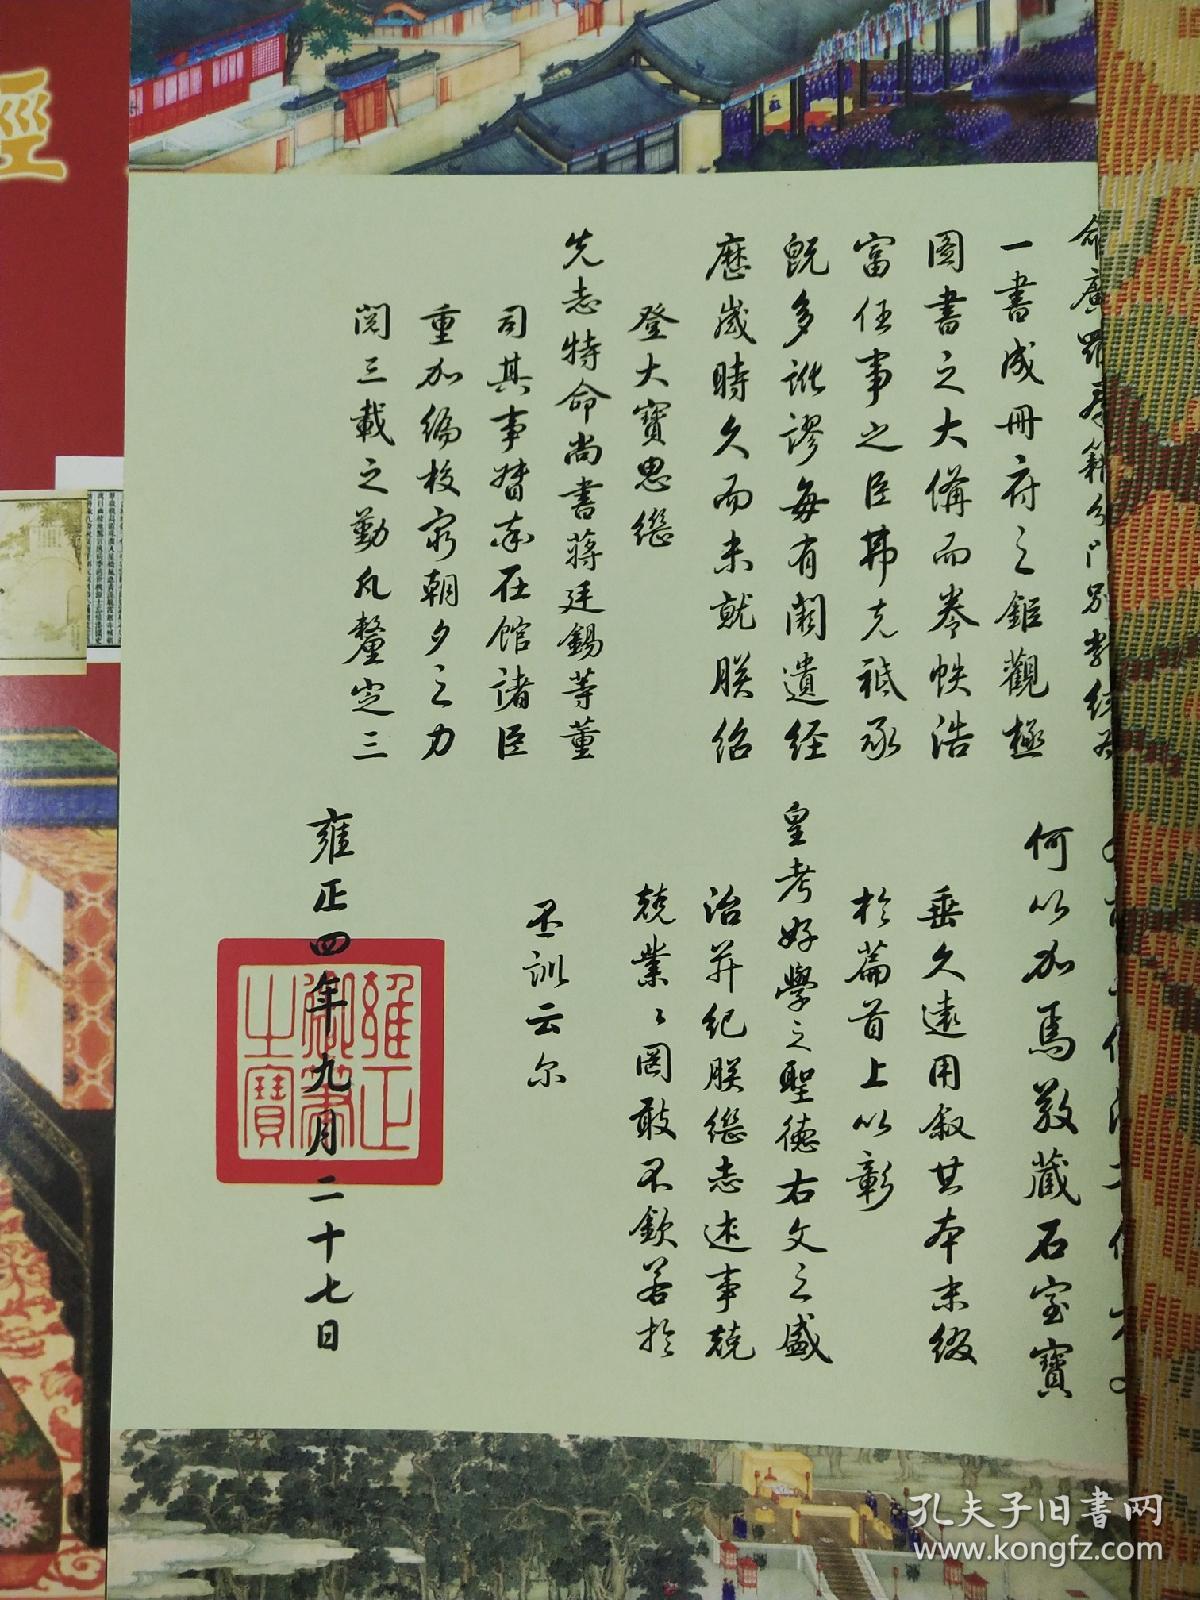 命廣羅群籍分門別類統為
一書成冊府之鉅觀極
圖書之大備而卷帙浩
富任事之臣弗克祗承
既多訛謬每有闕遺經
歷歲時久而未就朕紹
登大寶思繼
先志特命尚書蔣廷錫等董
司其事督率在館諸臣
重加編校窮朝夕之力
閱三載之勤凡釐定三
何以加焉敬藏石室寶
垂久遠用叙其本末綴
於篇首上以彰
皇考好學之聖德右文之盛
治并紀朕繼志述事兢
兢業〻罔敢不欽若於
丕訓云尔
雍正四年九月二十七日
雍正
御筆
之寶
經
孔夫子旧书网
www.kongfz.com